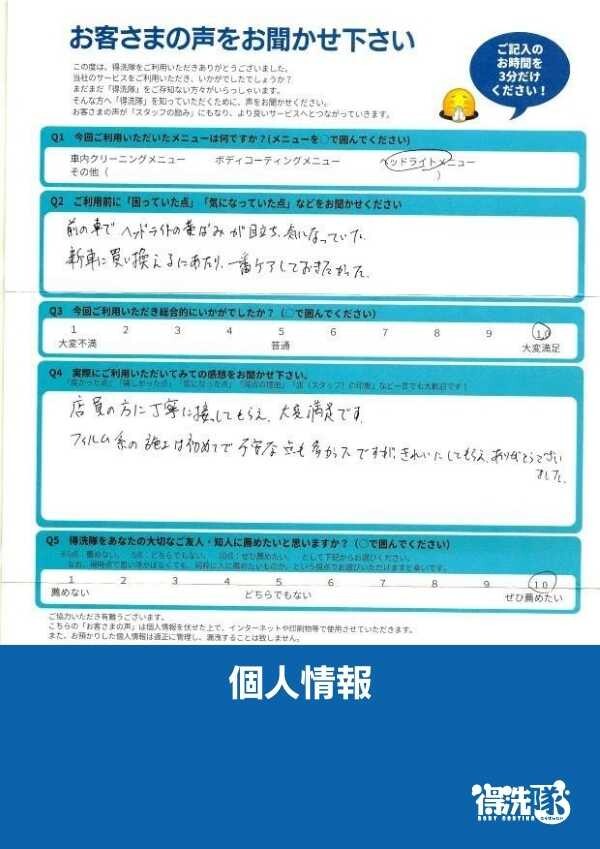 お客さまの声をお聞かせ下さい
ご記入の
お時間を
3分だけ
ください!
この度は、得洗隊をご利用いただきありがとうございました。
当社のサービスをご利用いただき、いかがでしたでしょうか?
まだまだ「得洗隊」をご存知ない方々がいらっしゃいます。
そんな方へ「得洗隊」を知っていただくために、声をお聞かせください。
お客さまの声が「スタッフの励み」にもなり、より良いサービスへとつながっていきます。
Q1 今回ご利用いただいたメニューは何ですか?(メニューを○で囲んでください)
車内クリーニングメニュー ボディコーティングメニュー ヘッドライトメニュー
その他( )
Q2 ご利用前に「困っていた点」「気になっていた点」などをお聞かせください
前の車でヘッドライトの黄ばみが目立ち、気になっていた。
新車に買い換えるにあたり、一番ケアしておきたかった。
Q3 今回ご利用いただき総合的にいかがでしたか?(○で囲んでください)
1 2 3 4 5 6 7 8 9 10
大変不満 普通 大変満足
Q4 実際にご利用いただいてみての感想をお聞かせ下さい。
「良かった点」「嬉しかった点」「気になった点」「満点の理由」「店(スタッフ)の印象」など一言でも大歓迎です!
店員の方に丁寧に接してもらえ、大変満足です。
フィルム系の施工は初めてで不安な点も多かったですが、きれいにしてもらえ、ありがとうござい
ました。
Q5 得洗隊をあなたの大切なご友人・知人に薦めたいと思いますか?(○で囲んでください)
0点:薦めない、 5点:どちらでもない、 10点:ぜひ薦めたい、 として下記からお選びください。
1 2 3 4 5 6 7 8 9 10
薦めない どちらでもない ぜひ薦めたい
ご協力いただき有難うございます。
こちらの「お客さまの声」は個人情報を伏せた上で、インターネットや印刷物等で使用させていただきます。
また、お預かりした個人情報は適正に管理し、漏洩することは致しません。
個人情報
得洗隊
BODY COATING